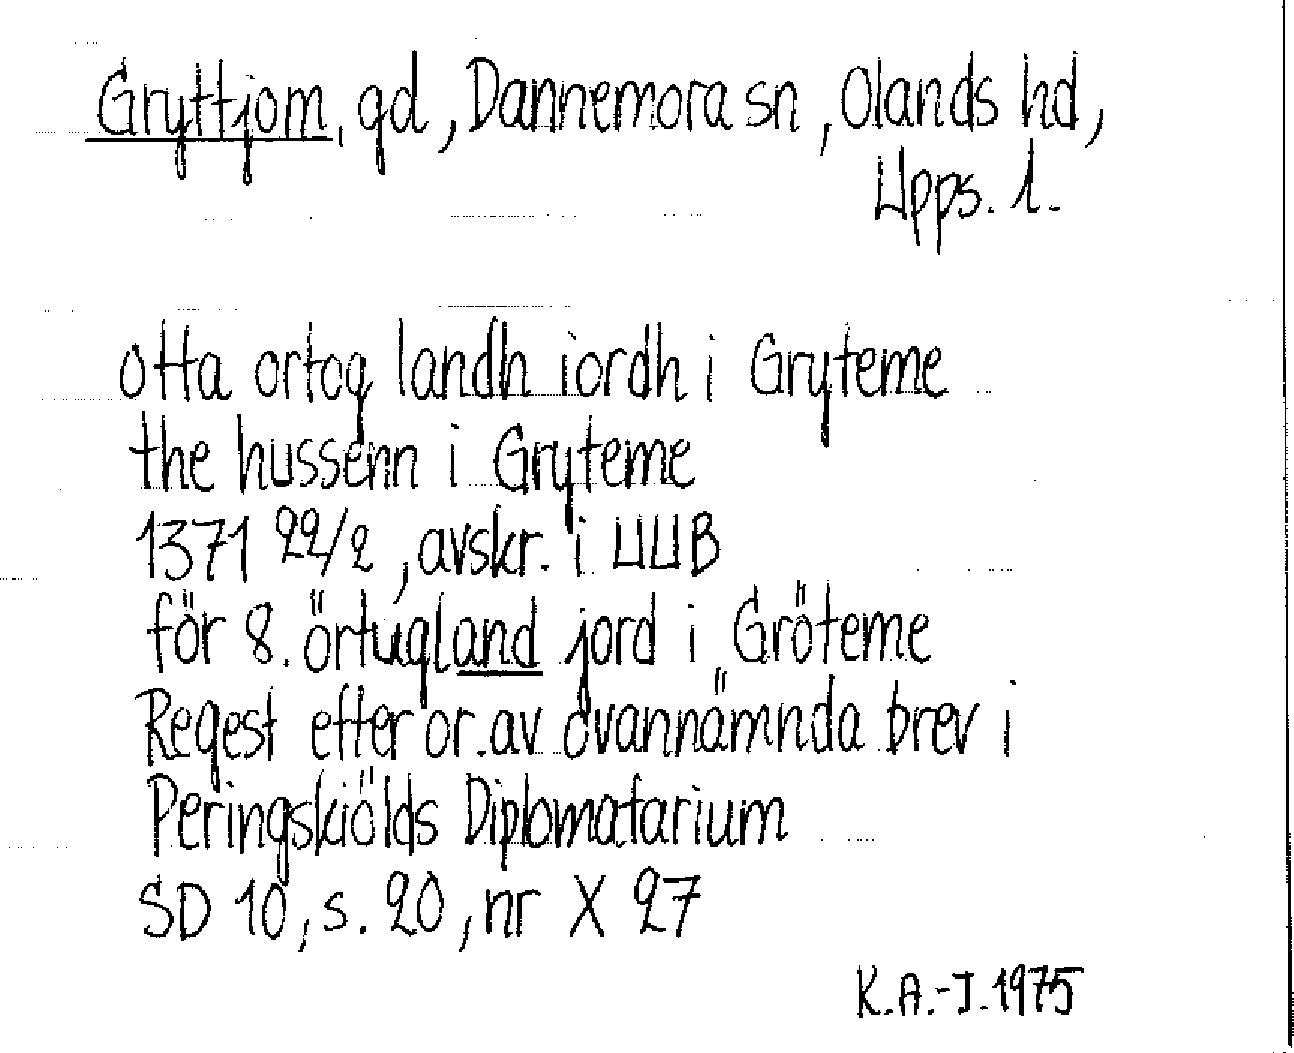 Gryttjom, gd, Dannemora sn, Olands hd,
Upps. l.
otta ortog landh iordh i Gryteme
the hussenn i Gryteme
1371 22/2, avskr. i UUB
för 8. örtugland jord i Gröteme
Regest efter or. av ovannämnda brev i
Peringskiölds Diplomatarium
SD 10, s. 20, nr X 27
K.A.-J. 1975